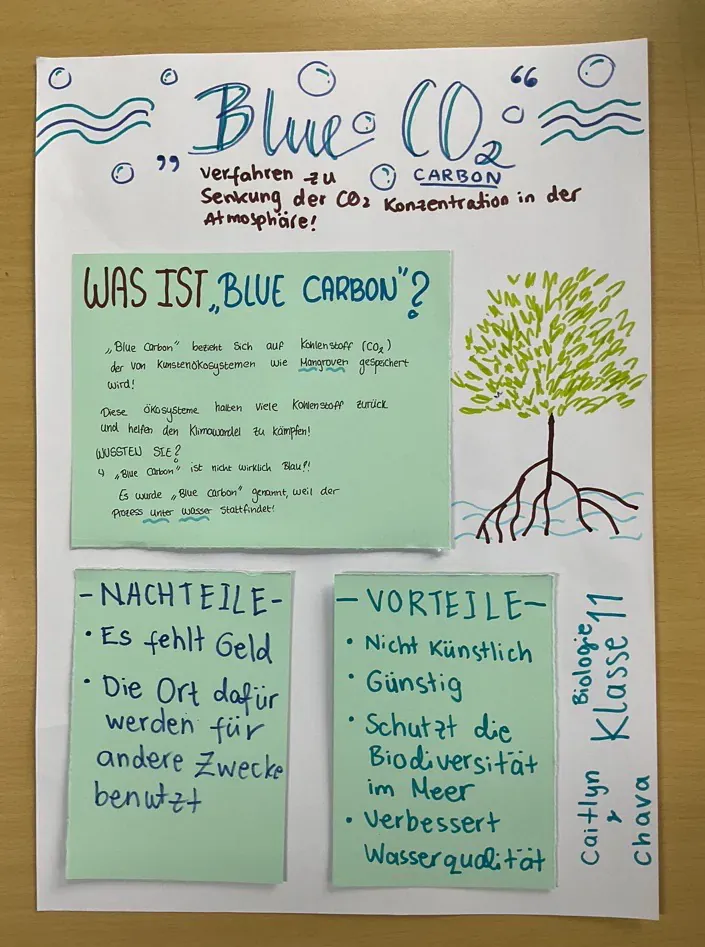 Blue CO₂ “
„ Verfahren zu CARBON
Senkung der CO₂ Konzentration in der
Atmosphäre!
WAS IST „BLUE CARBON“?
„Blue Carbon“ bezieht sich auf Kohlenstoff (CO₂)
der von Küstenökosystemen wie Mangroven gespeichert
wird!
Diese ökosysteme halten viele Kohlenstoff zurück
und helfen den Klimawandel zu kämpfen!
WUSSTEN SIE?
↳ „Blue Carbon“ ist nicht wirklich Blau!!
Es wurde „Blue Carbon“ genannt, weil der
Prozess unter wasser stattfindet!
-NACHTEILE-
• Es fehlt Geld
• Die Ort dafür
werden für
andere Zwecke
benutzt
-VORTEILE-
• Nicht Künstlich
• Günstig
• Schutzt die
Biodiversität
im Meer
• Verbessert
Wasserqualität
Biologie
Klasse 11
Caitlyn &
Chava